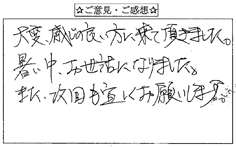 ☆ご意見・ご感想☆
大変、感じの良い方に来て頂きました。
暑い中、お世話になりました。
また、次回も宜しくお願いします